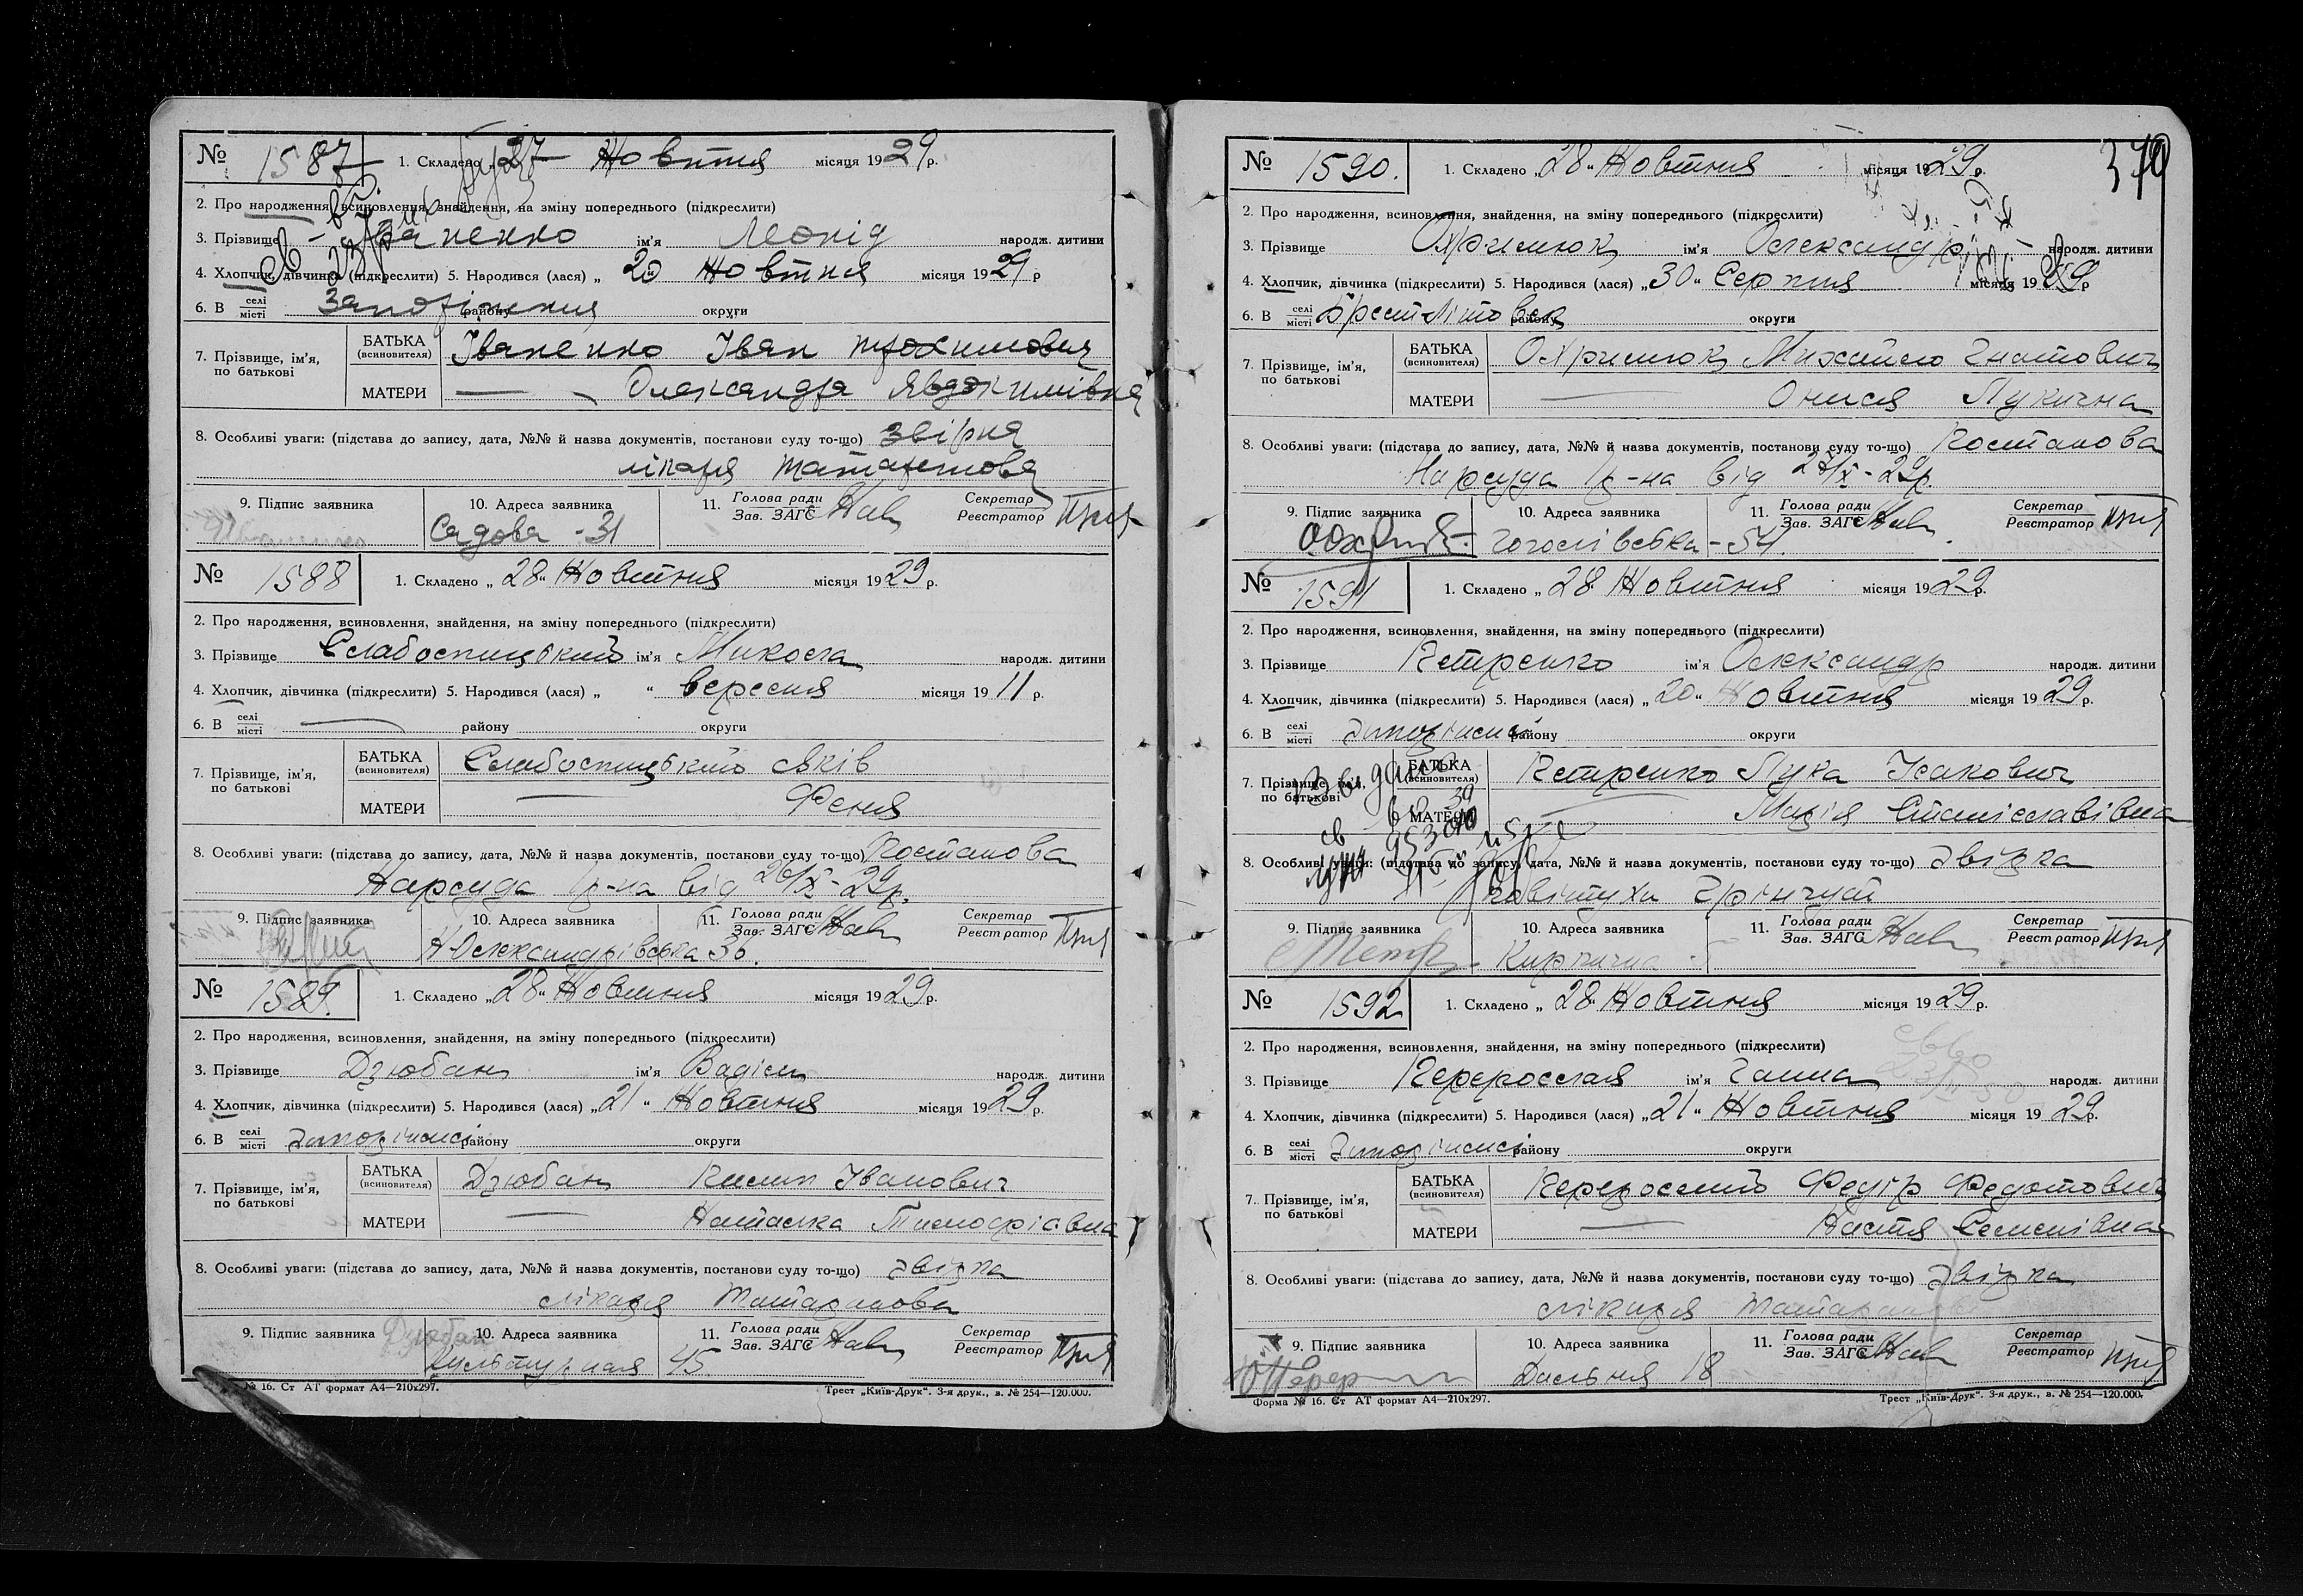 № 1587 1. Складено „27 Жовтня місяця 1929 р.
2. Про народження, всиновлення, знайдення, на зміну попереднього (підкреслити)
3. Прізвище Іваненко ім'я Леонід народж. дитини
4. Хлопчик, дівчинка (підкреслити) 5. Народився (лася) „ 20 Жовтня місяця 1929 р
6. В селі місті Запоріжжя району округи
7. Прізвище, ім'я, по батькові
БАТЬКА (всиновителя) Іваненко Іван Трохимович
МАТЕРИ — Олександра Явдокимівна
8. Особливі уваги: (підстава до запису, дата, №№ й назва документів, постанови суду то-що) звірка
лікаря
9. Підпис заявника 10. Адреса заявника 11. Голова ради Зав. ЗАГС Секретар Реєстратор
Садова - 31
№ 1588 1. Складено „ 28 “ Жовтня місяця 1929 р.
2. Про народження, всиновлення, знайдення, на зміну попереднього (підкреслити)
3. Прізвище Слабоспицький ім'я Микола народж. дитини
4. Хлопчик, дівчинка (підкреслити) 5. Народився (лася) „ “ вересня місяця 19 11 р.
6. В селі місті — району округи
7. Прізвище, ім'я, по батькові
БАТЬКА (всиновителя) Слабоспицький
МАТЕРИ — Феня
8. Особливі уваги: (підстава до запису, дата, №№ й назва документів, постанови суду то-що) Постанова
Нарсуда р-на від 26/X - 29р.
9. Підпис заявника 10. Адреса заявника 11. Голова ради Зав. ЗАГС Секретар Реєстратор
Н Олександрівська 36.
№ 1589. 1. Складено „28“ Жовтня місяця 1929 р.
2. Про народження, всиновлення, знайдення, на зміну попереднього (підкреслити)
3. Прізвище Дзюбан ім'я Вадім народж. дитини
4. Хлопчик, дівчинка (підкреслити) 5. Народився (лася) „21 “ Жовтня місяця 1929 р.
6. В селі місті району округи
7. Прізвище, ім'я, по батькові
БАТЬКА (всиновителя) Дзюбан Іванович
МАТЕРИ — Наталка
8. Особливі уваги: (підстава до запису, дата, №№ й назва документів, постанови суду то-що) звірка
лікаря
9. Підпис заявника Дзюбан 10. Адреса заявника 11. Голова ради Зав. ЗАГС Секретар Реєстратор
Культурная 45
№ 16. Ст АТ формат А4—210х297. Трест „Київ-Друк“. 3-я друк., з. № 254—120.000.
370
№ 1590. 1. Складено „28“ Жовтня місяця 1929 р.
2. Про народження, всиновлення, знайдення, на зміну попереднього (підкреслити)
3. Прізвище Охримюк ім'я Олександр народж. дитини
4. Хлопчик, дівчинка (підкреслити) 5. Народився (лася) „30“ Серпня місяця 1929 р
6. В селі місті Брест Літовск району округи
7. Прізвище, ім'я, по батькові
БАТЬКА (всиновителя) Охримюк Михайло Гнатович
МАТЕРИ — Онися Лукична
8. Особливі уваги: (підстава до запису, дата, №№ й назва документів, постанови суду то-що) Постанова
Нарсуда р-на від 27/X - 29р.
9. Підпис заявника 10. Адреса заявника 11. Голова ради Зав. ЗАГС Секретар Реєстратор
Гоголівська - 54.
№ 1591 1. Складено „ 28 Жовтня місяця 1929 р.
2. Про народження, всиновлення, знайдення, на зміну попереднього (підкреслити)
3. Прізвище Петренко ім'я Олександр народж. дитини
4. Хлопчик, дівчинка (підкреслити) 5. Народився (лася) „ 20“ Жовтня місяця 1929 р.
6. В селі місті району округи
7. Прізвище, ім'я, по батькові
БАТЬКА (всиновителя) Петренко Лука Ісакович
МАТЕРИ — Марія Станіславівна
8. Особливі уваги: (підстава до запису, дата, №№ й назва документів, постанови суду то-що) звірка
повитухи
9. Підпис заявника 10. Адреса заявника 11. Голова ради Зав. ЗАГС Секретар Реєстратор
Кирпична 5
№ 1592 1. Складено „ 28 Жовтня місяця 1929 р.
2. Про народження, всиновлення, знайдення, на зміну попереднього (підкреслити)
3. Прізвище Перерослая ім'я Ганна народж. дитини
4. Хлопчик, дівчинка (підкреслити) 5. Народився (лася) „21“ Жовтня місяця 19 29 р.
6. В селі місті району округи
7. Прізвище, ім'я, по батькові
БАТЬКА (всиновителя) Перерослий Федір Федотович
МАТЕРИ — Настя Семенівна
8. Особливі уваги: (підстава до запису, дата, №№ й назва документів, постанови суду то-що) звірка
лікаря
9. Підпис заявника 10. Адреса заявника 11. Голова ради Зав. ЗАГС Секретар Реєстратор
Дальня 18
Форма № 16. Ст АТ формат А4—210х297. Трест „Київ-Друк“. 3-я друк., з. № 254—120.000.